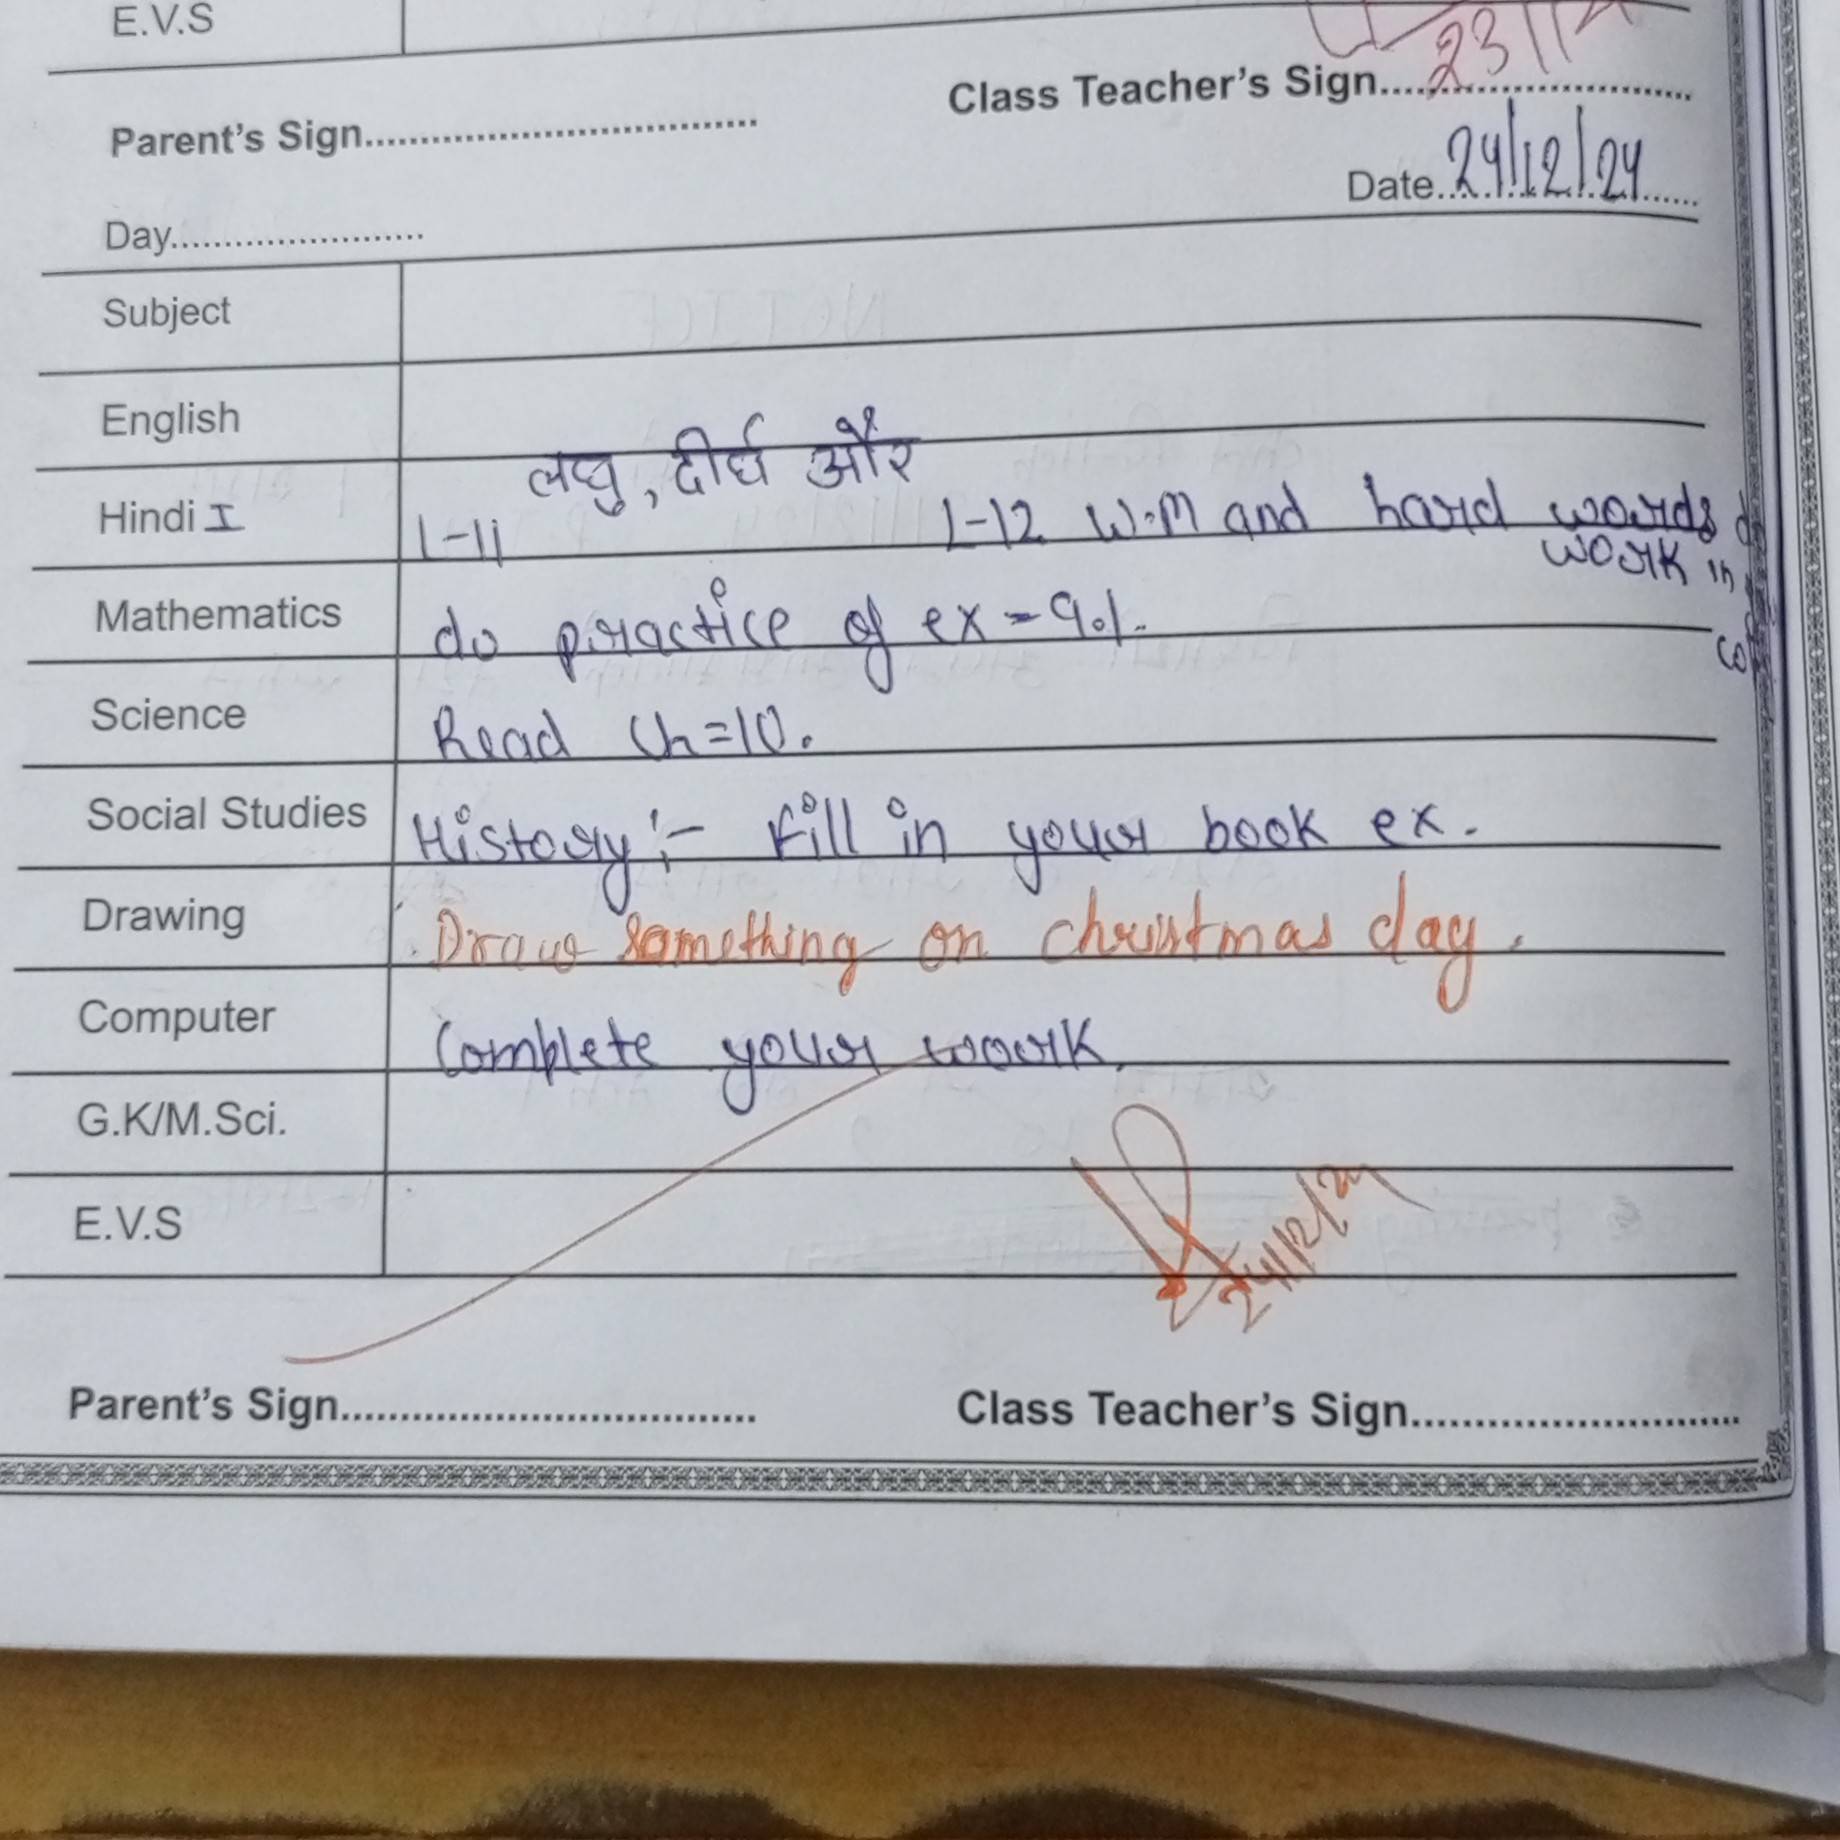 E.V.S
23/12
Class Teacher's Sign..............................
Parent's Sign..................................
Date..24/12/24......
Day........................
Subject
English
Hindi I
लघु, दीर्घ और
L-11 L-12 W.M and hard words
work in
Mathematics do practice of ex - 9.1.
Science Read Ch=10.
Social Studies History :- Fill in your book ex.
Drawing Draw something on christmas day.
Computer Complete your work.
G.K/M.Sci.
E.V.S
24/12/24
Parent's Sign.................................. Class Teacher's Sign..........................